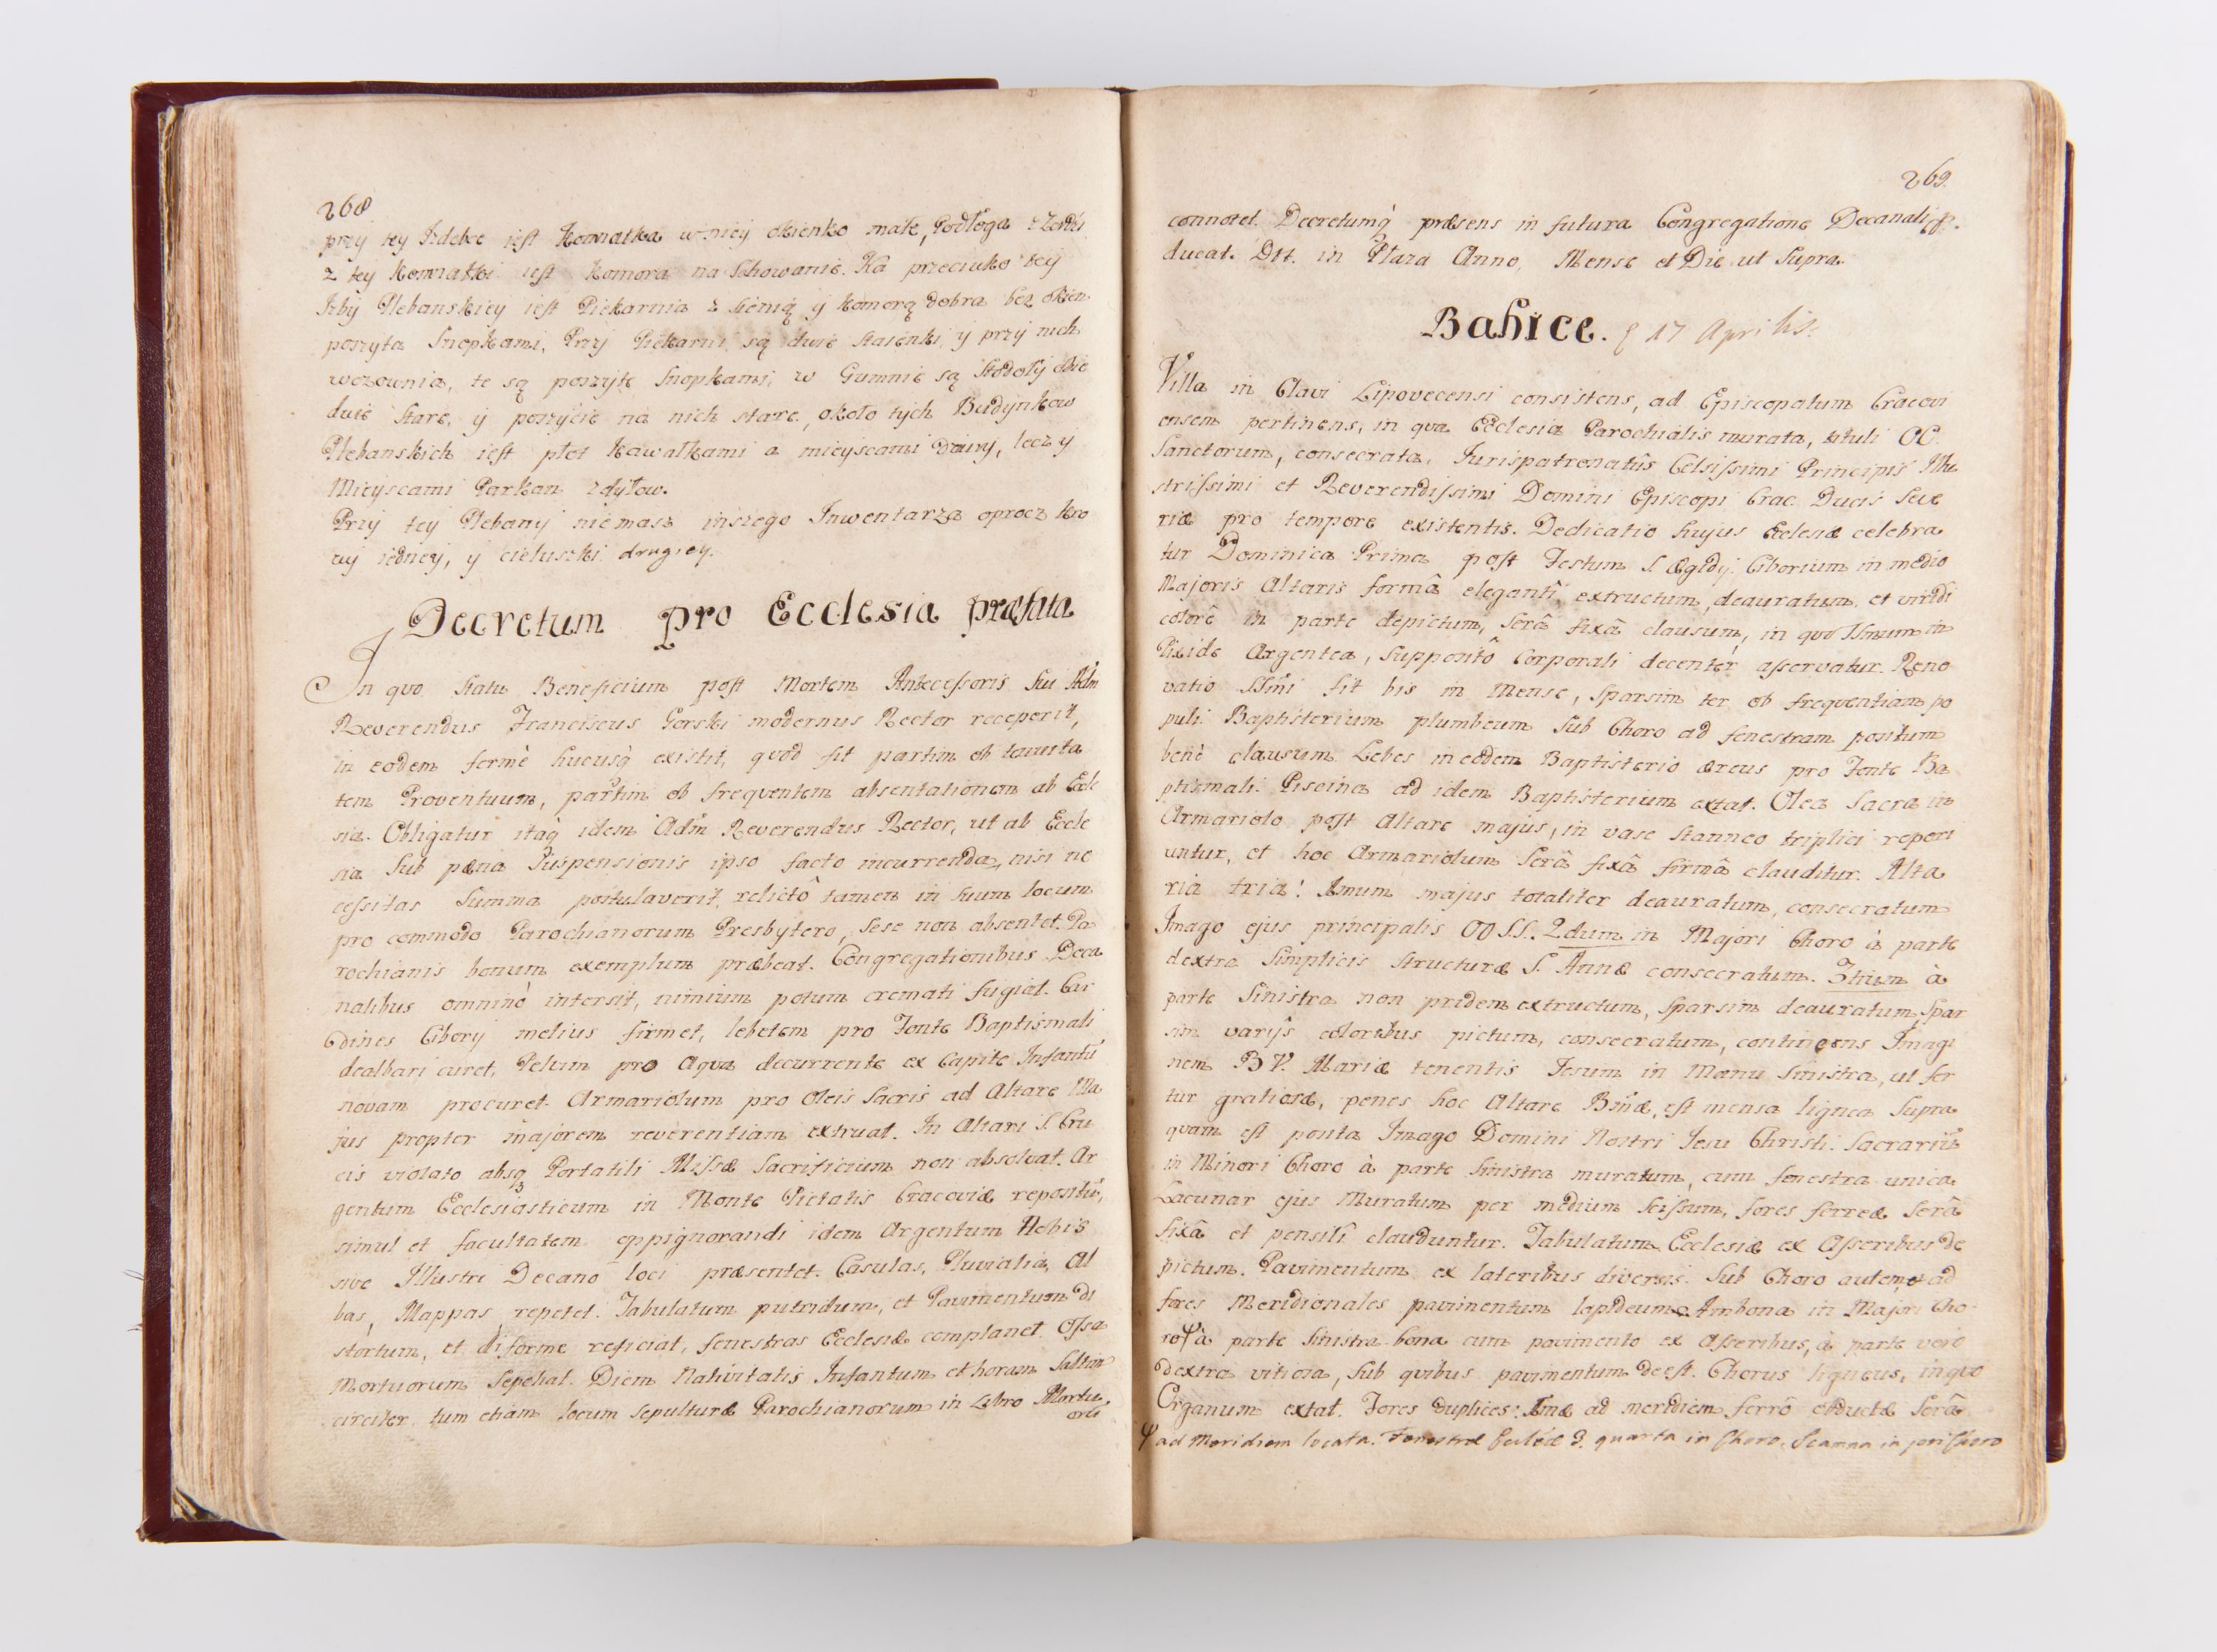 268
przy tey Izdebce iest Komnatka w niey okienko małe, Podłoga
z tey Komnatki iest komora na Schowanie. Na przeciwko tey
Izby Plebanskiey iest Piekarnia z Sienią y komorą dobra bez okien
poszyta Snopkami, Przy Piekarni są dwie staienki, y przy nich
wozownia, te są poszyte Snopkami, w Gumnie są Stodoły obie
dwie stare, y poszycie na nich stare, około tych Budynkow
Plebanskich iest płot kawałkami a mieyscami dziury, lecz y
Mieyscami Parkan z dylow.
Przy tey Plebany niemasz inszego Inwentarza oprocz kro
wy iedney, y cieluszki drugiey.
Decretum pro Ecclesia præfata
In quo Statu Beneficium post Mortem Antecessoris Sui Adm
Reverendus Franciscus Gorski modernus Rector receperit,
in eodem fermè hucusq existit, quod fit partim ob tenuita
tem Proventuum, partim ob frequentem absentationem ab Eccle
sia. Obligatur itaq idem Adm Reverendus Rector, ut ab Eccle
sia Sub pæna Suspensionis ipso facto incurrenda, nisi ne
cessitas Summa postulaverit, relictô tamen in suum locum
pro commodo Parochianorum Presbytero, sese non absentet. Pa
rochianis bonum exemplum præbeat. Congregationibus Deca
nalibus omninò intersit, nimium potum cremati fugiat. Car
dines Cibory melius firmet, lebetem pro Fonte Baptismali
dealbari curet, Pelvim pro Aqua decurrente ex Capite Infantũ
novam procuret. Armariolum pro Oleis Sacris ad Altare Ma
jus propter majorem reverentiam extruat. In Altari S. Cru
cis violato absq Portatili Missæ Sacrificium non absolvat. Ar
gentum Ecclesiasticum in Monte Pietatis Cracoviæ repositũ,
simul et facultatem oppignorandi idem Argentum Nobis
sive Illustri Decano loci præsentet. Casulas, Pluvialia, Al
bas, Mappas, repetet. Tabulatum putridum, et Pavimentum di
stortum, et diforme reficiat, fenestras Ecclesiæ complanet. Ossa
Mortuorum Sepeliat. Diem Nativitatis Infantum et horam Saltim
circiter tum etiam locum sepulturæ Parochianorum in Libro Mortu
orũ
269.
connotet. Decretumq præsens in futura Congregatione Decanali p̱
ducat. Dtt. in Płaza Anno, Mense et Die ut Supra.
Babice. 17 Aprilis.
Villa in Clavi Lipovecensi consistens, ad Episcopatum Cracovi
ensem pertinens, in qva Ecclesia Parochialis murata, tituli OO.
Sanctorum, consecrata. Jurispatronatûs Celsissimi Principis Illu
strissimi et Reverendissimi Domini Episcopi Crac. Ducis Seve
riæ pro tempore existentis. Dedicatio hujus Ecclesiæ celebra
tur Dominica Prima post Festum S. Ægidy. Ciborium in medio
Majoris Altaris formâ elegantî, extructum, deauratum, et viridi
colorê in parte depictum, serâ fixâ clausum, in quo SSmum in
Pixide Argentea, supposito Corporali decenter asservatur. Reno
vatio SSmi fit bis in Mense, sparsim ter ob frequentiam po
puli. Baptisterium plumbeum Sub Choro ad fenestram positum
benè clausum. Lebes in eodem Baptisterio æreus pro Fonte Ba
ptismali. Piscina ad idem Baptisterium extat. Olea Sacra in
Armariolo post Altare majus, in vase stanneo triplici reperi
untur, et hoc Armariolum Serâ fixâ firmâ clauditur. Alta
ria tria: 1mum majus totaliter deauratum, consecratum
Imago ejus principalis OO SS. 2dum in Majori Choro à parte
dextra Simplicis structuræ S. Annæ consecratum. 3tium à
parte Sinistra non pridem extructum, sparsim deauratum, spar
sim varijs coloribus pictum, consecratum, continens Imagi
nem B V. Mariæ tenentis Jesum in Manu Sinistra, ut fer
tur gratiosæ, penes hoc Altare Bmæ, est mensa lignea supra
quam est posita Imago Domini Nostri Jesu Christi. Sacrariũ
in Minori Choro à parte Sinistra muratum, cum fenestra unica
Lacunar ejus Muratum per medium Scissum, fores ferreæ Serâ
fixâ et pensilî clauduntur. Tabulatum Ecclesiæ ex Asseribus de
pictum. Pavimentum ex lateribus diversis. Sub Choro autem et ad
fores Meridionales pavimentum lapideum. Ambona in Majori Cho
ro à parte Sinistra bona cum pavimento ex Asseribus, à parte verò
dextra vitiosa, sub qvibus pavimentum deest. Chorus ligneus, in qvo
Organum extat. Fores duplices: 1mæ ad meridiem ferrô obductæ Serâ
ad Meridiem locata. Fenestræ 3. quarta in Choro. Scamna in